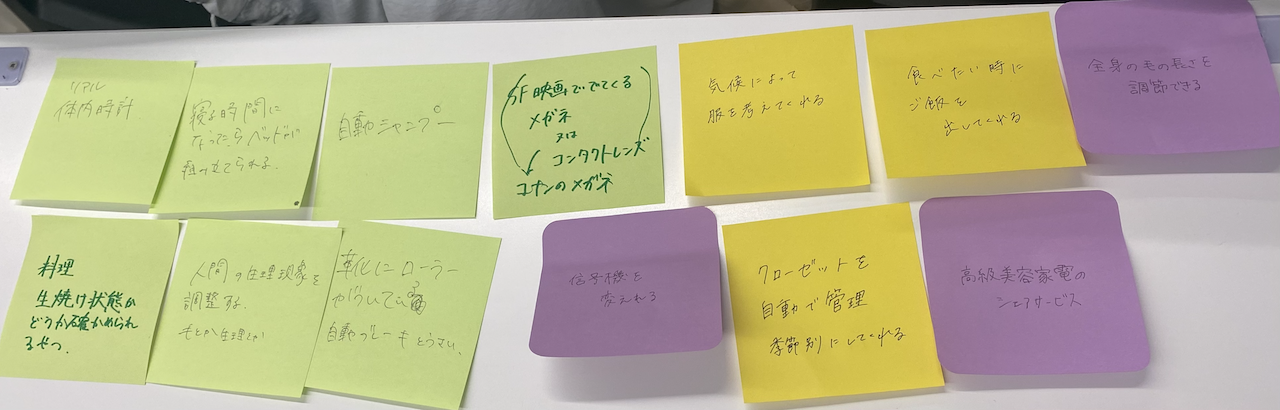 リアル
体内時計
寝る時間に
なったらベッドが
組み立てられる.
自動シャンプー
SF映画ででてくる
メガネ
又は
コンタクトレンズ
コナンのメガネ
気候によって
服を考えてくれる
食べたい時に
ご飯を
出してくれる
全身の毛の長さを
調節できる
料理
生焼け状態か
どうか確かめられ
るやつ.
人間の生理現象を
調整する.
生理とか
靴にローラー
がついている
自動ブレーキ
信号機を
変えれる
クローゼットを
自動で管理
季節別にしてくれる
高級美容家電の
シェアサービス